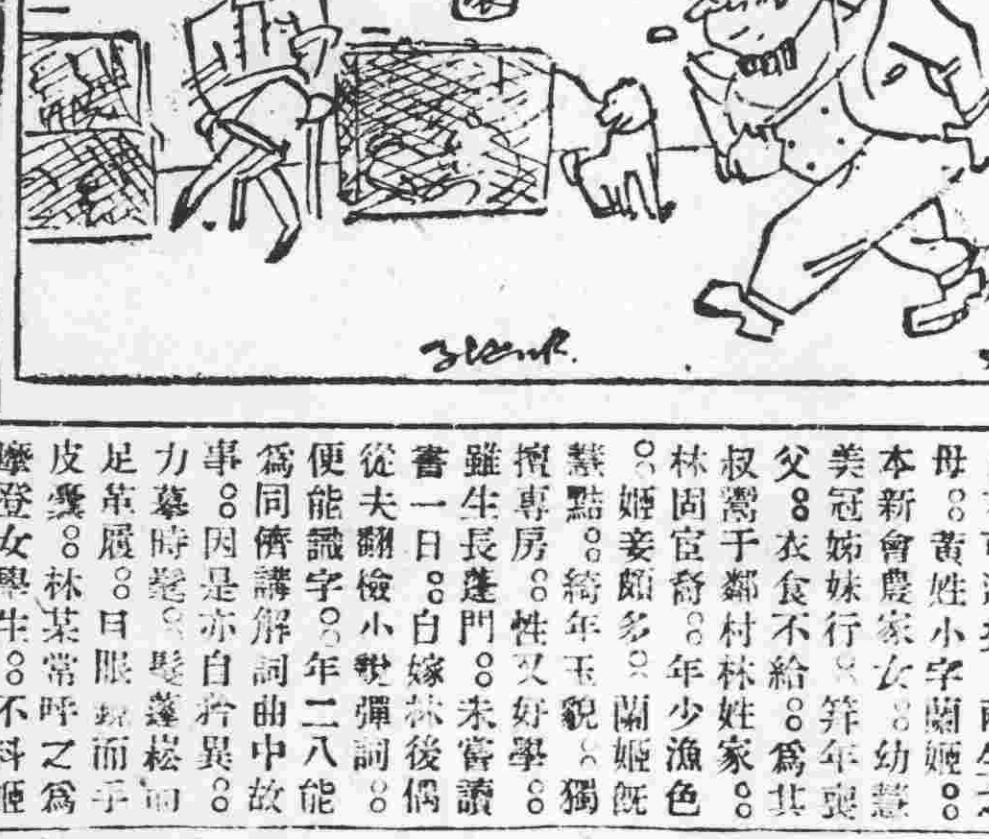 母。黃姓小字蘭姬。
本新會農家女。幼慧
美冠姊妹行。笄年喪
父。衣食不給。為其
叔鬻于鄰村林姓家。
林固宦裔。年少漁色
。姬妾頗多。蘭姬既
慧黠。綺年玉貌。獨
擅專房。性又好學。
雖生長蓬門。未嘗讀
書一日。自嫁林後偶
從夫翻檢小說彈詞。
便能識字。年二八能
為同儕講解詞曲中故
事。因是亦自矜異。
力摹時髦。髮蓬崧而
足革履。目眼鏡而手
皮囊。林某常呼之為
登女學生。不料姬